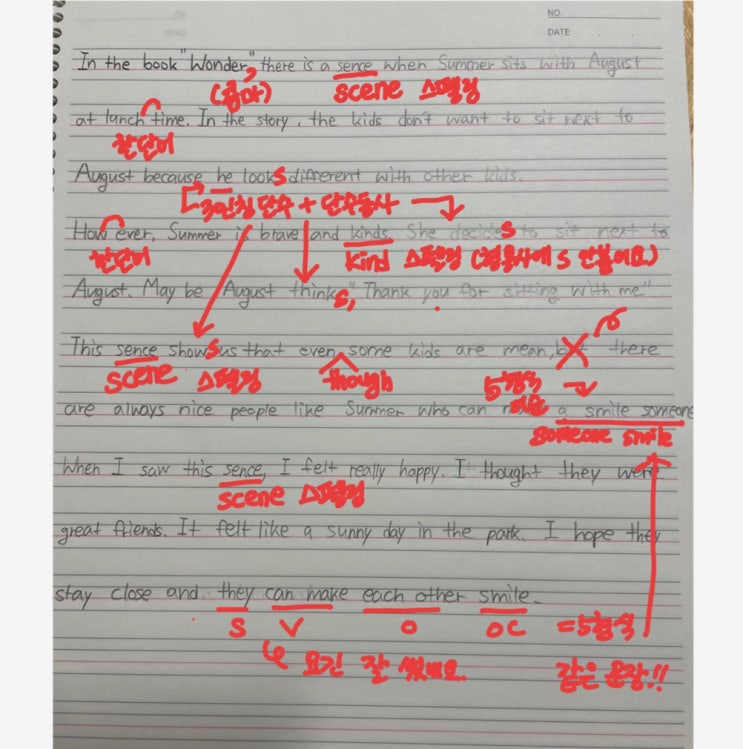 NO.
DATE
In the book "Wonder", there is a sence when Summer sits with August
(콤마) scene 스펠링
at lunch time. In the story, the kids don't want to sit next to
한단어
August because he looks different with other kids.
3인칭 단수 + 단수동사
How ever, Summer is brave and kinds. She decides to sit next to
한단어 kind 스펠링 (형용사에 s 안붙어요)
August. May be August thinks, "Thank you for sitting with me".
This sence shows us that even some kids are mean, there
scene 스펠링 though 5형식
are always nice people like Summer who can a smile someone
someone smile
When I saw this sence, I felt really happy. I thought they were
scene 스펠링
great friends. It felt like a sunny day in the park. I hope they
stay close and they can make each other smile.
S V O OC =5형식
요긴 잘 썼네요.. 같은 문장!!